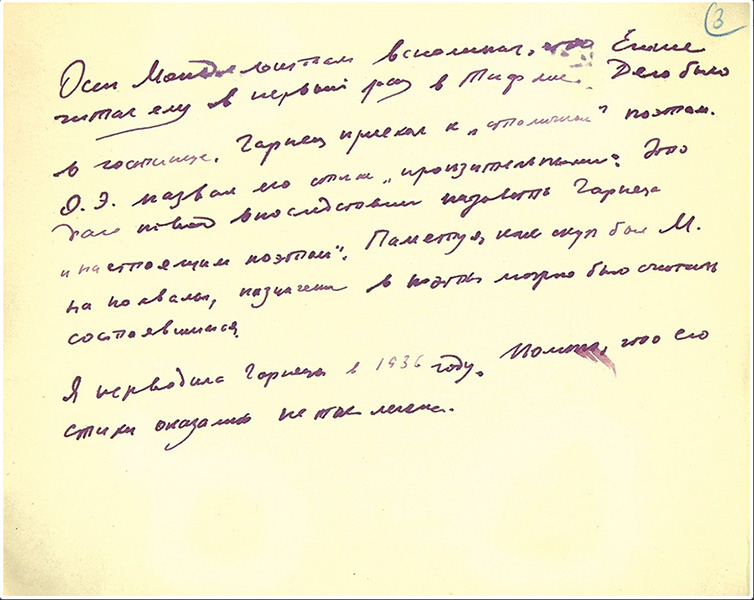 3
Осип Мандельштам вспоминал, что Егише
читал ему в первый раз в Тифлисе. Дело было
в гостинице. Чаренц приехал к „столичным“ поэтам.
О. Э. назвал его стихи „пронзительными“. Это
дало повод впоследствии назвать Чаренца
„настоящим поэтом“. Памятуя, как скуп был М.
на похвалы, назначение в поэты можно было считать
состоявшимся.
Я переводила Чаренца в 1936 году. Помню, что его
стихи оказались не так легки.